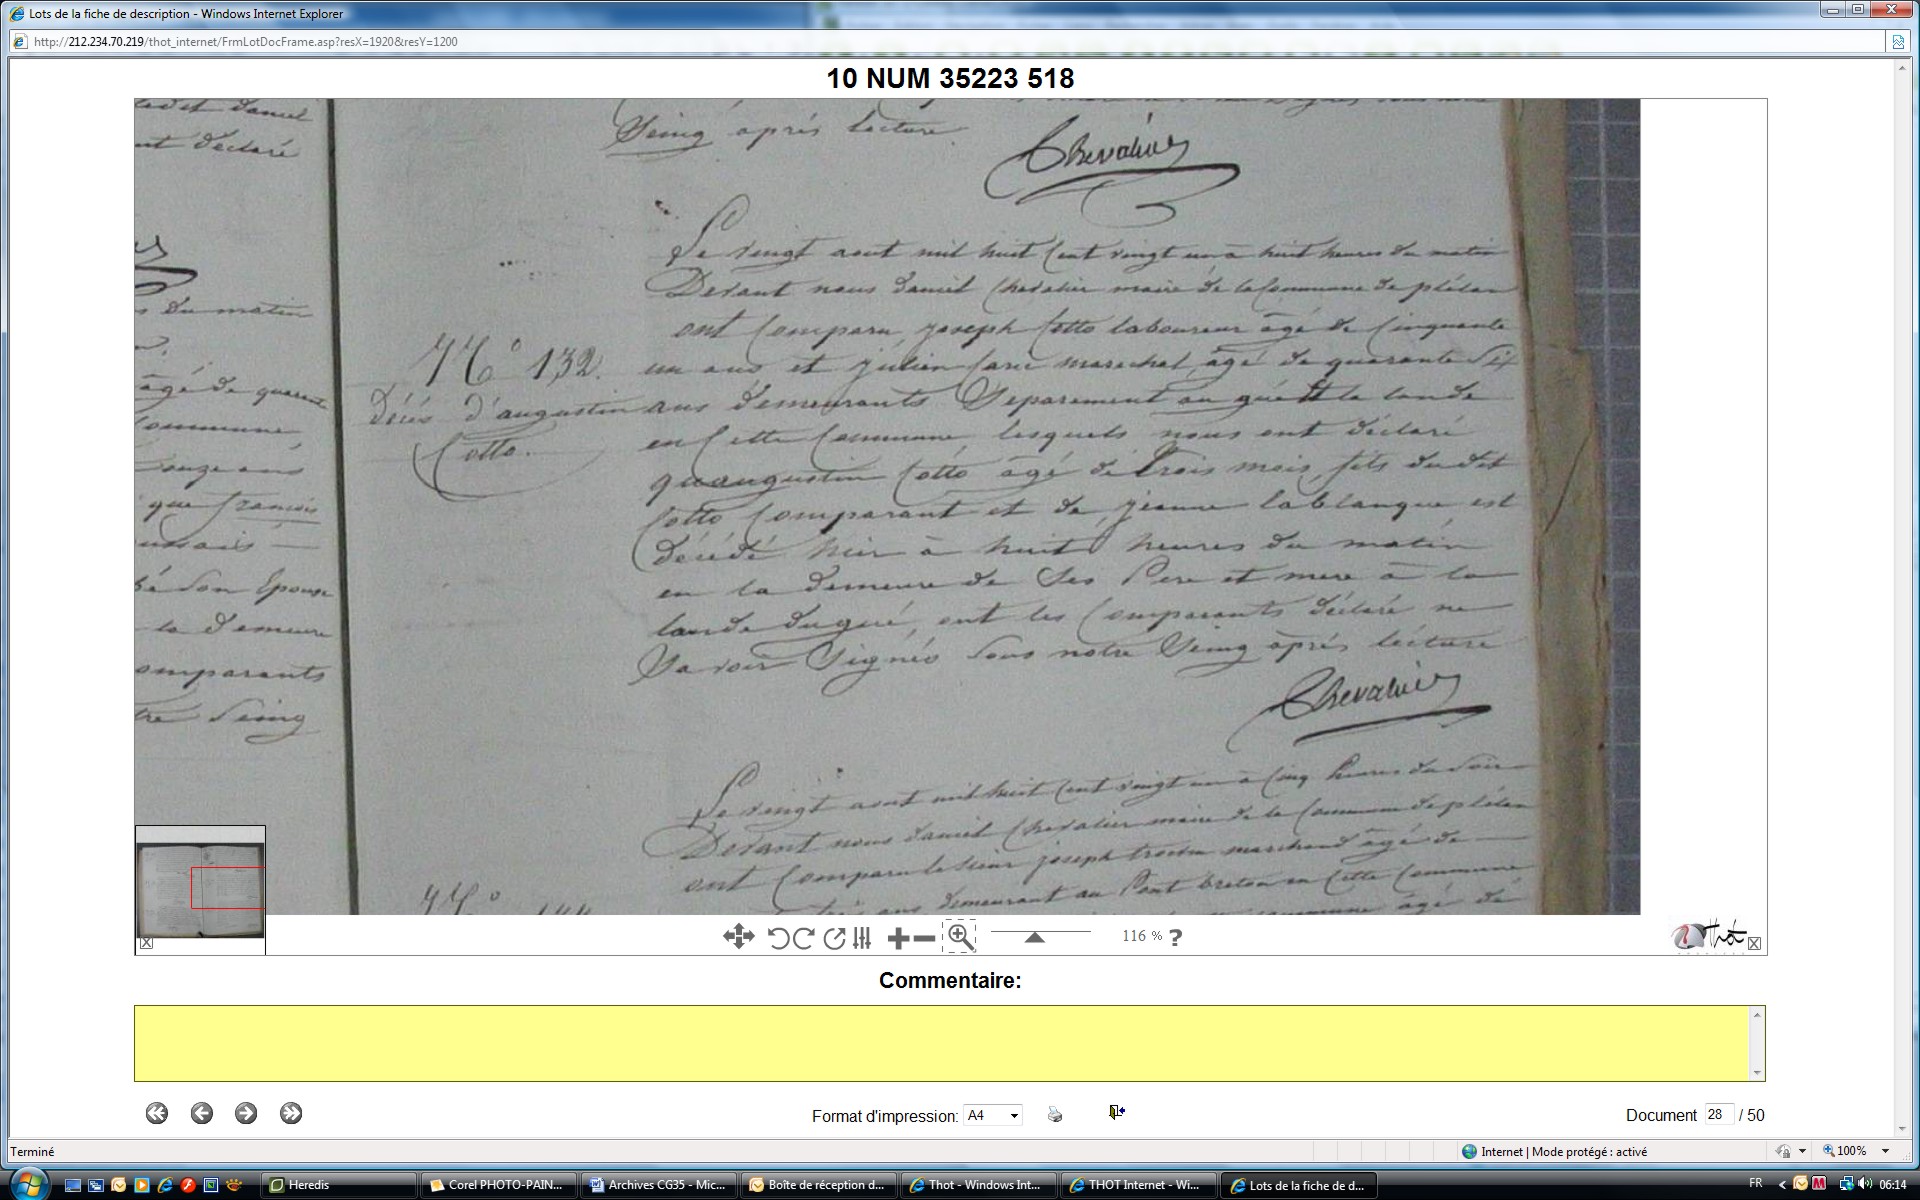 Lots de la fiche de description - Windows Internet Explorer
http://212.234.70.219/thot_internet/FrmLotDocFrame.asp?resX=1920&resY=1200
10 NUM 35223 518
cadet daniel
nt déclaré
Seing après lecture
Chevalier
s du matin
âgé de quarante
Commune
onze ans
que francois
son Epouse
la demeure
omparants
tre Seing
N° 132.
Décés d'augustin
Cotto.
Le vingt aout mil huit Cent vingt un à huit heures du matin
Devant nous daniel Chevalier maire de la Commune de plélan
ont Comparu, joseph Cotto laboureur âgé de Cinquante
un ans et julien marechal, âgé de quarante Six
ans demeurants Séparement au gué et la lande
en Cette Commune lesquels nous ont déclaré
qu'augustin Cotto âgé de trois mois, fils dudit
Cotto Comparant et de jeanne lablanque est
décédé hier à huit heures du matin
en la demeure de Ses Pere et mere à la
lande du gué, ont les Comparants déclaré ne
Savoir Signés Sous notre Seing après lecture
Chevalier
Le vingt aout mil huit Cent vingt un à Cinq heures du Soir
Devant nous daniel Chevalier maire de la Commune de plélan
ont Comparu le sieur joseph marchand âgé de
trois ans demeurant au Pont breton en Cette Commune
N°
âgé de
116 % ?
Thot
Commentaire:
Format d'impression: A4
Document 28 / 50
Terminé
Internet | Mode protégé : activé
100%
Heredis
Corel PHOTO-PAIN...
Archives CG35 - Mic...
Boîte de réception d...
Thot - Windows Int...
THOT Internet - Wi...
Lots de la fiche de d...
FR
06:14